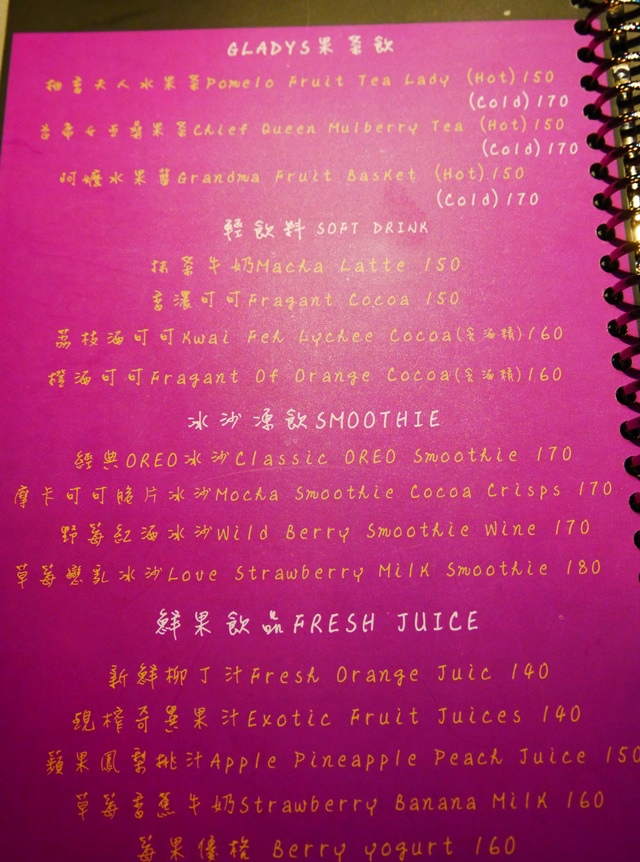 GLADYS果茶飲
柚香夫人水果茶Pomelo Fruit Tea Lady (Hot)150
(Cold)170
首席女王桑果茶Chief Queen Mulberry Tea (Hot)150
(Cold)170
阿嬤水果籃Grandma Fruit Basket (Hot)150
(Cold)170
輕飲料 SOFT DRINK
抹茶牛奶Macha Latte 150
香濃可可Fragant Cocoa 150
荔枝酒可可Kwai Feh Lychee Cocoa(含酒精)160
橙酒可可Fragant Of Orange Cocoa(含酒精)160
冰沙凍飲SMOOTHIE
經典OREO冰沙Classic OREO Smoothie 170
摩卡可可脆片冰沙Mocha Smoothie Cocoa Crisps 170
野莓紅酒冰沙Wild Berry Smoothie Wine 170
草莓戀乳冰沙Love Strawberry Milk Smoothie 180
鮮果飲品FRESH JUICE
新鮮柳丁汁Fresh Orange Juic 140
現榨奇異果汁Exotic Fruit Juices 140
蘋果鳳梨桃汁Apple Pineapple Peach Juice 150
草莓香蕉牛奶Strawberry Banana Milk 160
莓果優格 Berry yogurt 160